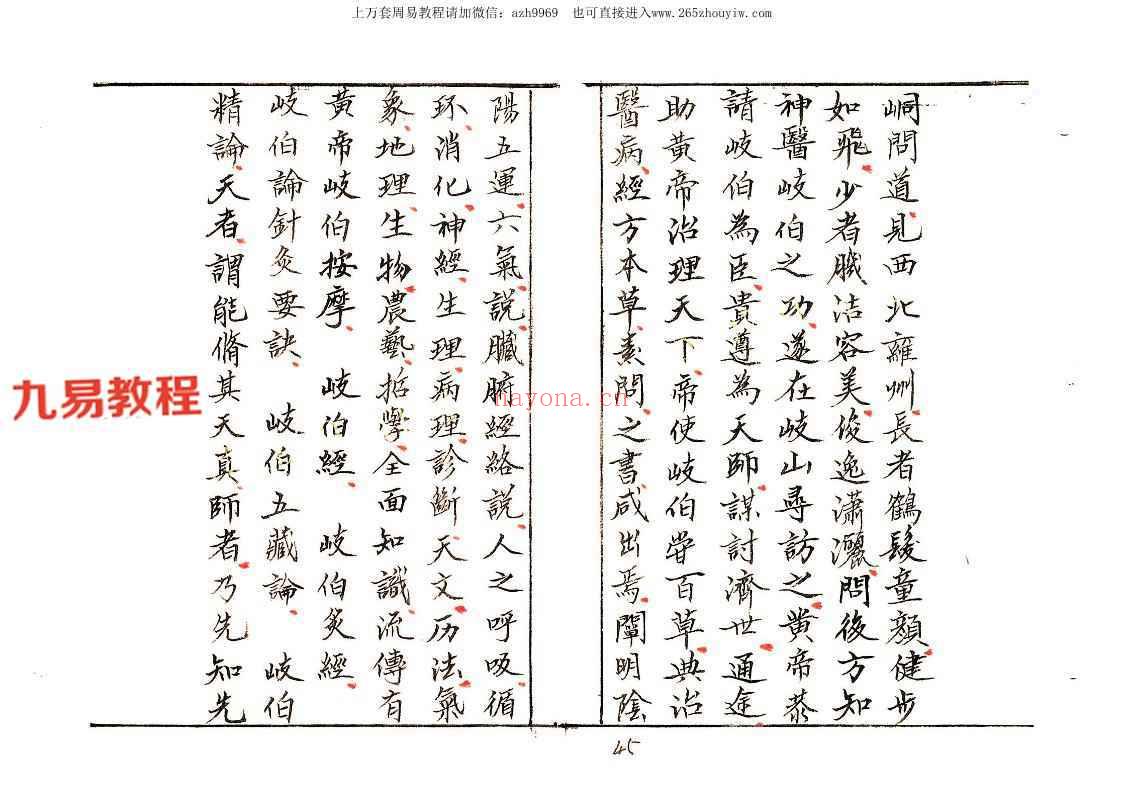 上万套周易教程请加微信：azh9969 也可直接进入www.265zhouyiw.com
峒問道見西北雍州長者鶴髮童顏健步
如飛少者膚潔容美俊逸瀟灑問後方知
神醫岐伯之功遂在岐山尋訪之黄帝恭
請岐伯為臣貴尊為天師謀討濟世通途
助黄帝治理天下帝使岐伯嘗百草典治
醫病經方本草素問之書咸出焉闡明陰
陽五運六氣說臟腑經絡說人之呼吸循
环消化神經生理病理診斷天文历法氣
象地理生物農藝哲學全面知識流傳有
黄帝岐伯按摩 岐伯經 岐伯灸經
岐伯論針灸要訣 岐伯五藏論 岐伯
精論天者謂能脩其天真師者乃先知先
45
九易教程
nayona.cn